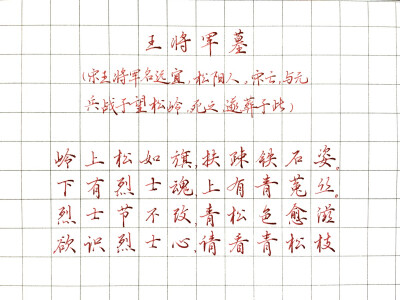 王将军墓
(宋王将军名远宜,松阳人,宋亡,与元
兵战于望松岭,死之,遂葬于此)
岭上松如旗,扶疎铁石姿。
下有烈士魂,上有青菟丝。
烈士节不改,青松色愈滋
欲识烈士心,请看青松枝